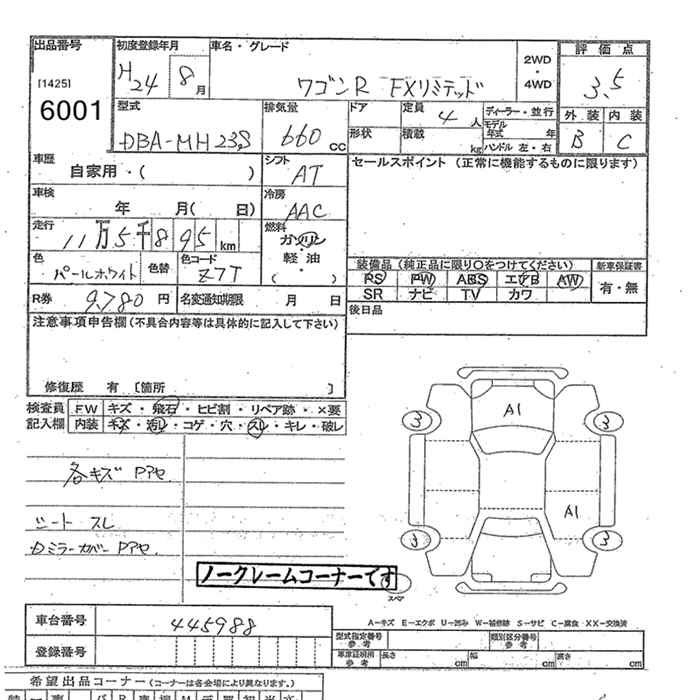 出品番号
[1425]
6001
初度登録年月
H24 8月
車名・グレード
ワゴンR FXリミテッド
2WD・4WD
評価点
3.5
外装 内装
B C
型式
DBA-MH23S
排気量
660 CC
ドア
形状
定員 4人
積載 kg
ディーラー・並行
モデル年式 年
ハンドル 左・右
車歴
自家用・( )
シフト
AT
セールスポイント (正常に機能するものに限ります)
車検
年 月( 日)
冷房
AAC
走行
11万5千895 km
燃料
ガソリン・軽油
( )
色
パールホワイト
色替
色コード
Z7T
装備品 (純正品に限り○をつけてください)
新車保証書
PS PW ABS エアB AW
有・無
SR ナビ TV カワ
R券 9,780 円
名変通知期限 月 日
後日品
注意事項申告欄 (不具合内容等は具体的に記入して下さい)
修復歴 有 〔箇所 〕
検査員 FW キズ・飛石・ヒビ割・リペア跡・×要
記入欄 内装 キズ・汚レ・コゲ・穴・スレ・キレ・破レ
各キズ Pアセ
シート スレ
Dミラーカバー PアセA1
3 3
A1
3 3
ノークレームコーナーです
スペア
A—キズ E—エクボ U—凹み W—補修跡 S—サビ C—腐食 XX—交換済
車台番号 445988
登録番号
型式指定番号 参考
類別区分番号 参考
車庫証明用 参考 長さ cm 幅 cm 高さ cm
希望出品コーナー (コーナーは各会場により異なります。)